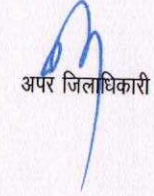 अपर जिलाधिकारी